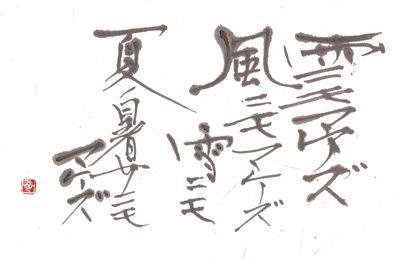 雨ニモマケズ
風ニモマケズ
雪ニモ
夏ノ暑サニモ
マケズ